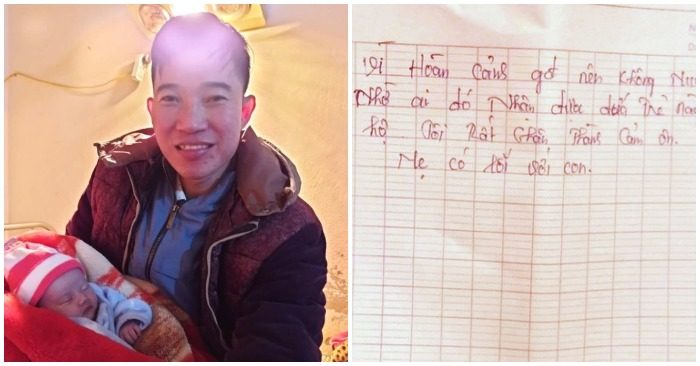 Vì Hoàn Cảnh gđ nên không
Nhờ ai đó Nhận đứa trẻ
hộ Tôi Rất Chân Thành Cảm ơn.
Mẹ có lỗi với con.